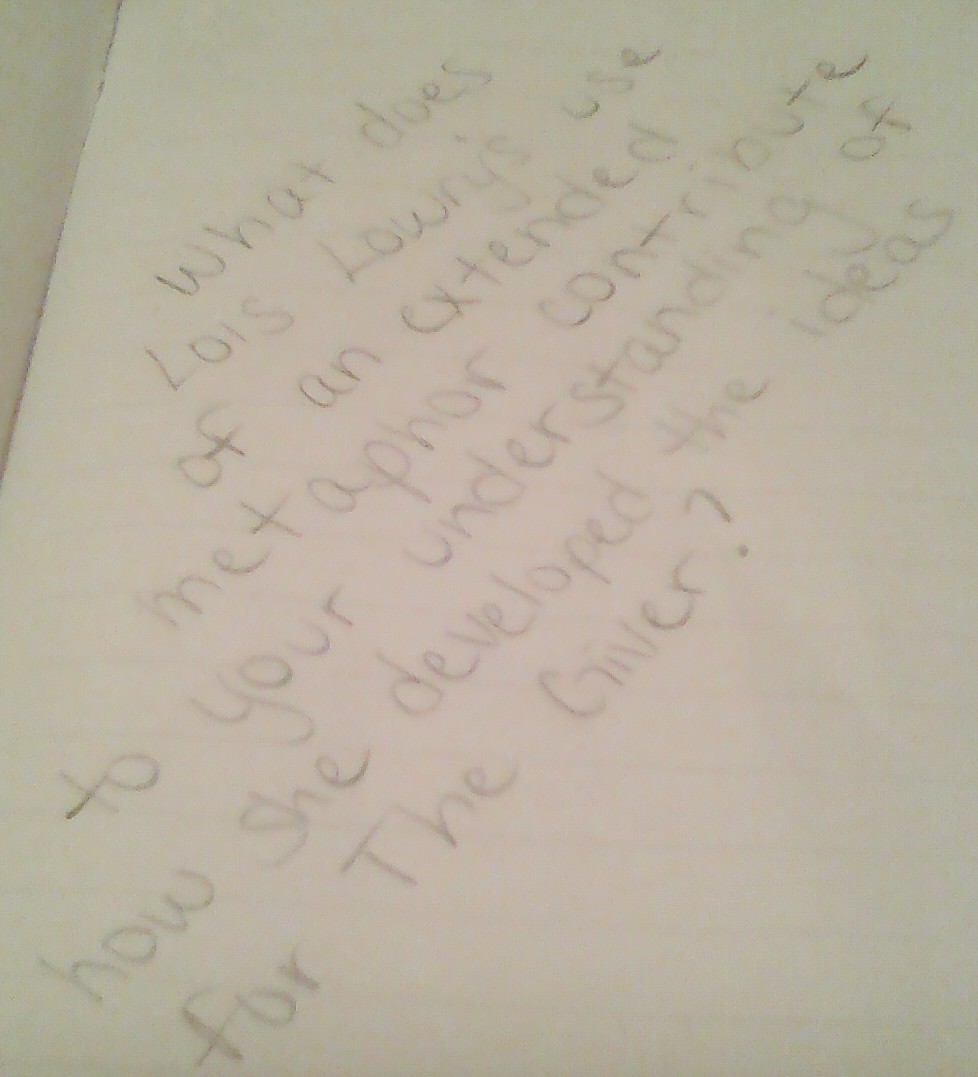 What does
Lois Lowry's use
of an extended
metaphor contribute
to your understanding of
how she developed the ideas
for The Giver?